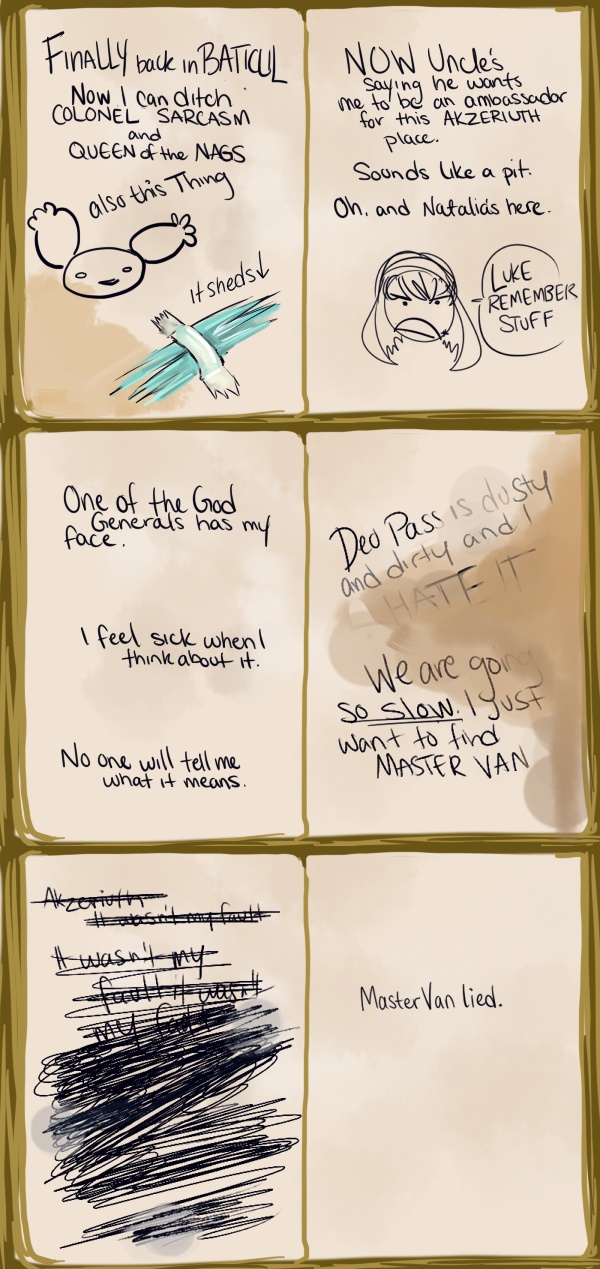 FINALLY back in BATICUL
Now I can ditch
COLONEL SARCASM
and
QUEEN of the NAGS
also this Thing
it sheds
NOW Uncle's
saying he wants
me to be an ambassador
for this AKZERIUTH
place.
Sounds like a pit.
Oh, and Natalia's here.
LUKE
REMEMBER
STUFF
One of the God
Generals has my
face.
I feel sick when I
think about it.
No one will tell me
what it means.
Deo Pass is dusty
and dirty and I
HATE IT
We are going
so slow. I just
want to find
MASTER VAN
Akzeriuth
It wasn't my fault
It wasn't my
fault it wasn't
my fault
Master Van lied.